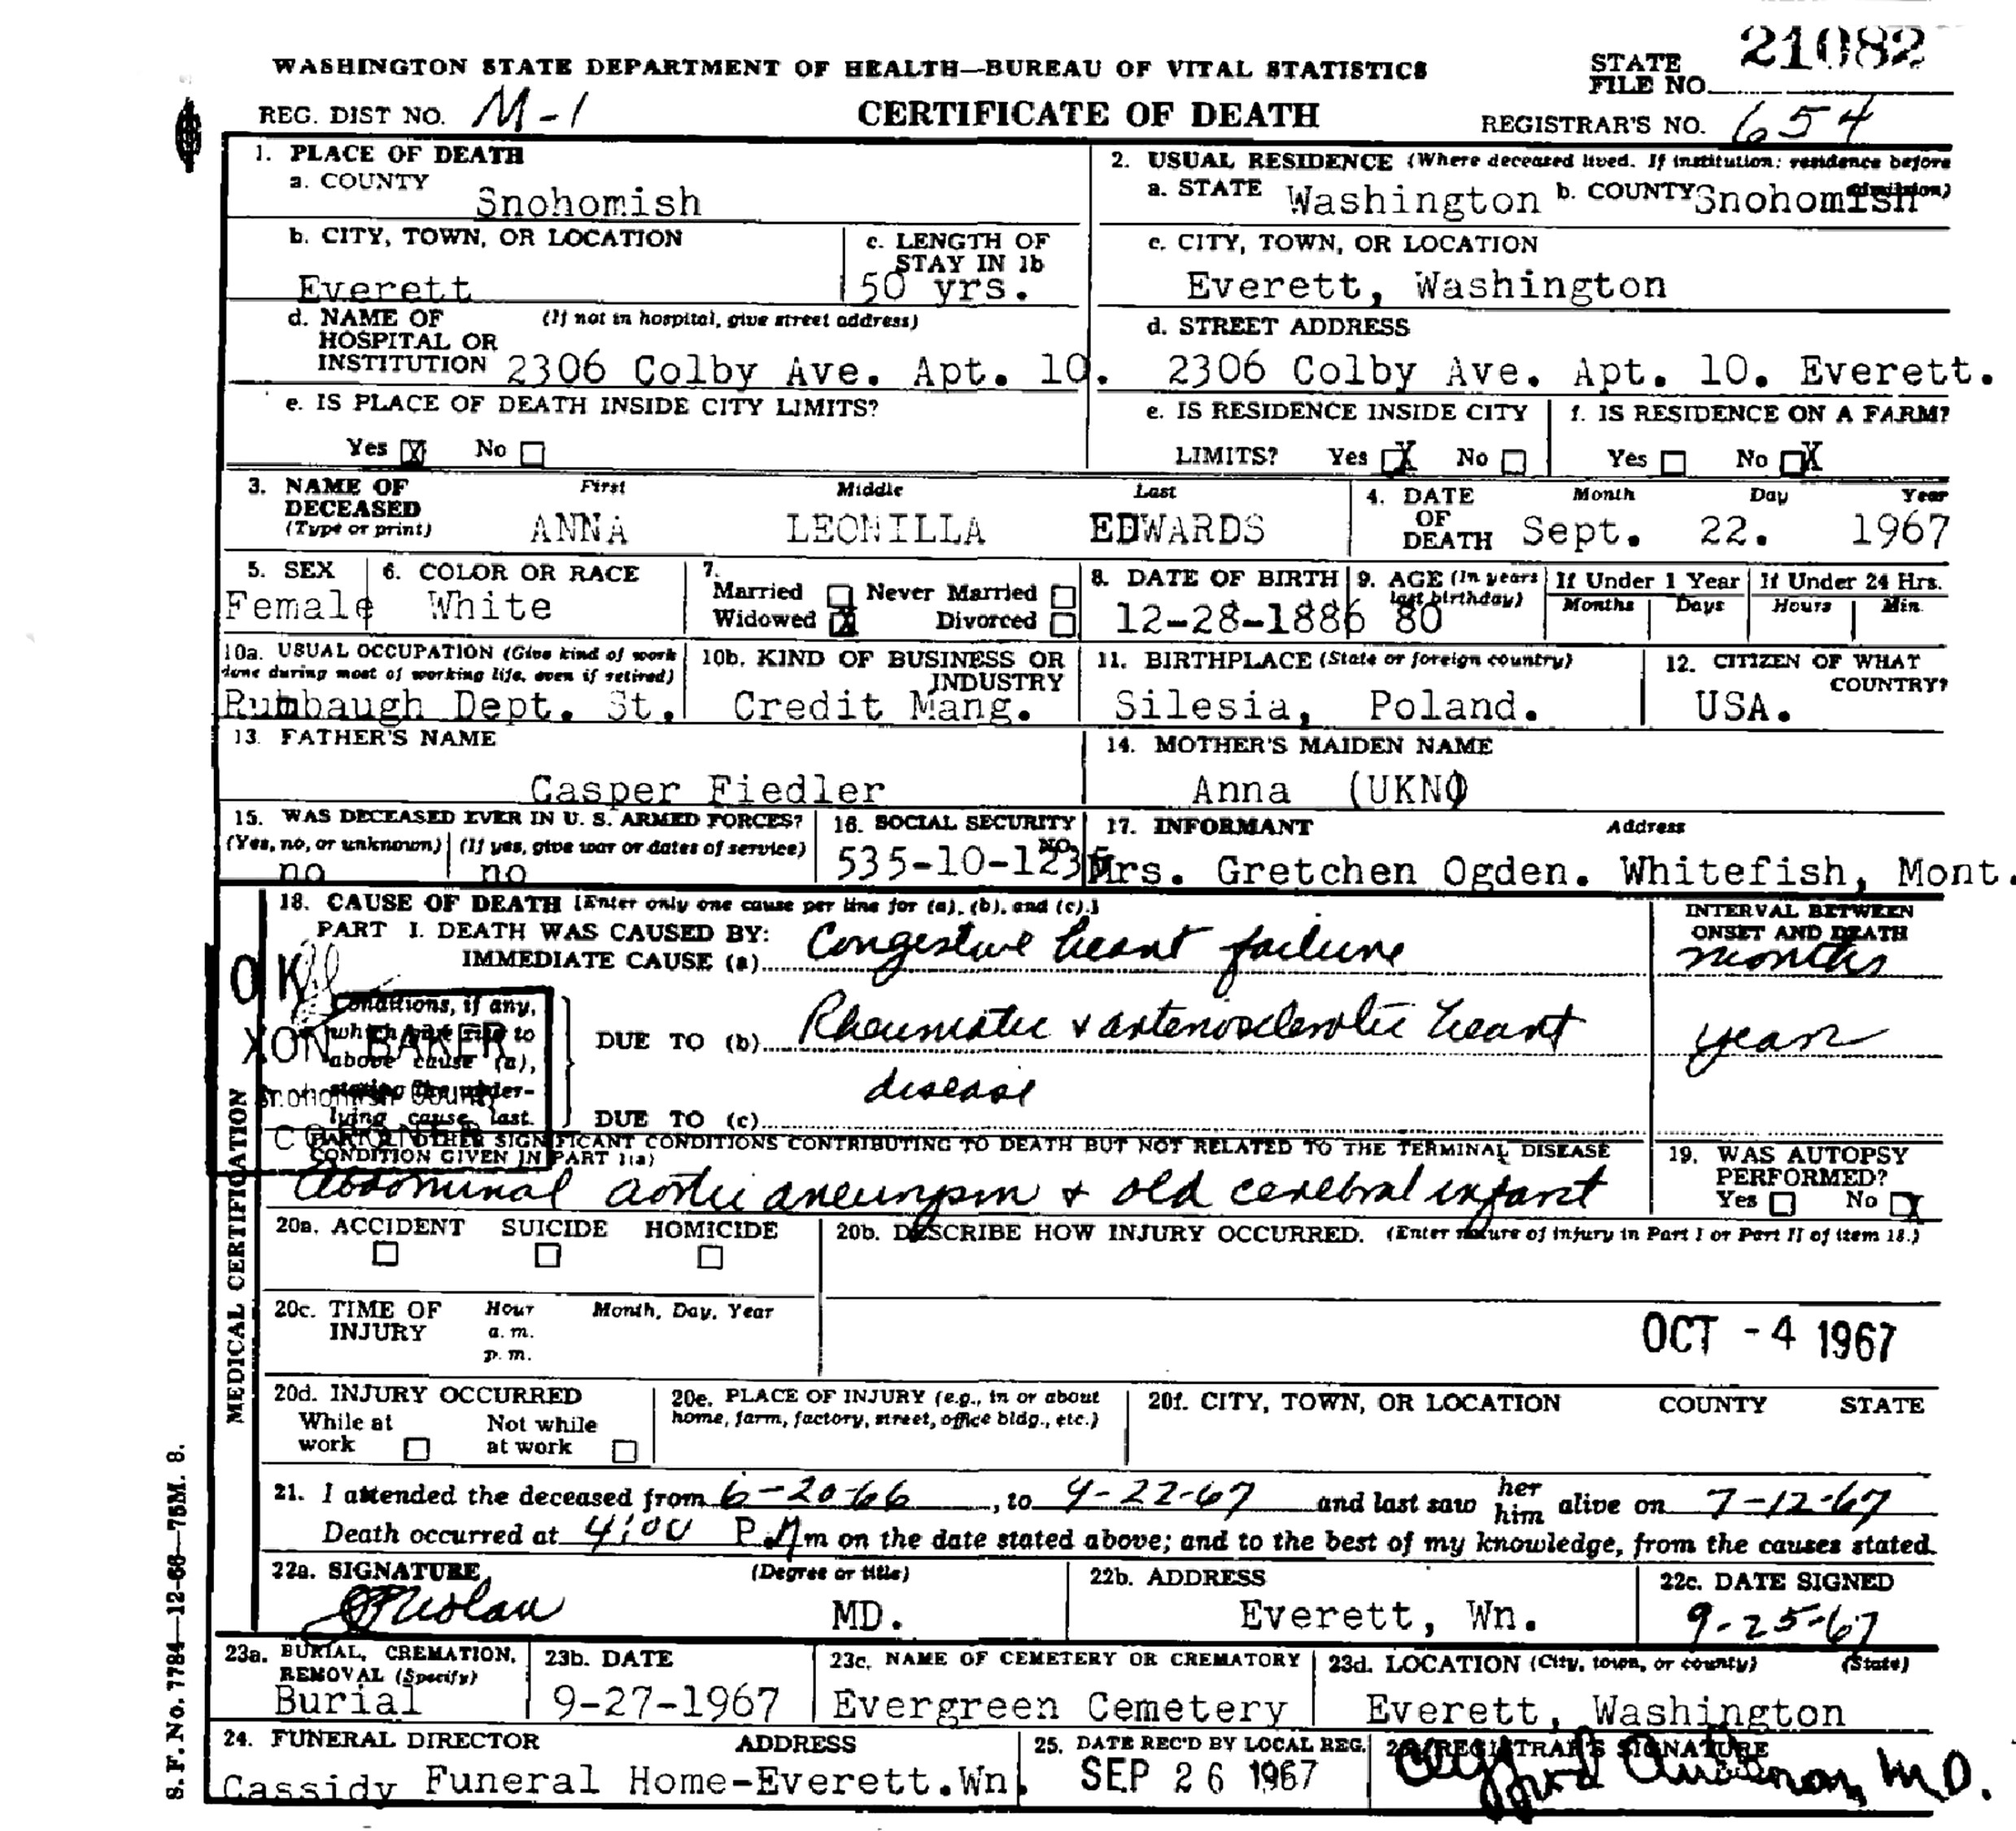 21082
WASHINGTON STATE DEPARTMENT OF HEALTH—BUREAU OF VITAL STATISTICS
STATE FILE NO.
REG. DIST NO. M-1
CERTIFICATE OF DEATH
REGISTRAR'S NO. 654
1. PLACE OF DEATH
a. COUNTY
Snohomish
2. USUAL RESIDENCE (Where deceased lived. If institution: residence before admission)
a. STATE Washington b. COUNTY Snohomish
b. CITY, TOWN, OR LOCATION
Everett
c. LENGTH OF STAY IN 1b
50 yrs.
c. CITY, TOWN, OR LOCATION
Everett, Washington
d. NAME OF HOSPITAL OR INSTITUTION (If not in hospital, give street address)
2306 Colby Ave. Apt. 10.
d. STREET ADDRESS
2306 Colby Ave. Apt. 10. Everett.
e. IS PLACE OF DEATH INSIDE CITY LIMITS?
Yes X No
e. IS RESIDENCE INSIDE CITY
LIMITS? Yes X No
f. IS RESIDENCE ON A FARM?
Yes No X
3. NAME OF DECEASED (Type or print)
First Middle Last
ANNA LEONILLA EDWARDS
4. DATE OF DEATH
Month Day Year
Sept. 22. 1967
5. SEX
Female
6. COLOR OR RACE
White
7.
Married Never Married
Widowed X Divorced
8. DATE OF BIRTH
12-28-1886
9. AGE (In years last birthday)
80
If Under 1 Year
Months Days
If Under 24 Hrs.
Hours Min.
10a. USUAL OCCUPATION (Give kind of work
done during most of working life, even if retired)
Rumbaugh Dept. St.
10b. KIND OF BUSINESS OR INDUSTRY
Credit Mang.
11. BIRTHPLACE (State or foreign country)
Silesia, Poland.
12. CITIZEN OF WHAT COUNTRY?
USA.
13. FATHER'S NAME
Casper Fiedler
14. MOTHER'S MAIDEN NAME
Anna (UKN)
15. WAS DECEASED EVER IN U. S. ARMED FORCES?
(Yes, no, or unknown) (If yes, give war or dates of service)
no no
16. SOCIAL SECURITY NO.
535-10-123
17. INFORMANT Address
Mrs. Gretchen Ogden. Whitefish, Mont.
18. CAUSE OF DEATH [Enter only one cause per line for (a), (b), and (c).]
PART I. DEATH WAS CAUSED BY:
IMMEDIATE CAUSE (a) Congestive heart failure
INTERVAL BETWEEN ONSET AND DEATH
months
OK
Conditions, if any,
which gave rise to
above cause (a),
stating the under-
lying cause last.
XON BAKER
Snohomish County
CORONER
DUE TO (b) Rheumatic & arteriosclerotic heart
years
disease
DUE TO (c)
PART II. OTHER SIGNIFICANT CONDITIONS CONTRIBUTING TO DEATH BUT NOT RELATED TO THE TERMINAL DISEASE
CONDITION GIVEN IN PART I(a)
Abdominal aortic aneurysm & old cerebral infarct
19. WAS AUTOPSY PERFORMED?
Yes No X
MEDICAL CERTIFICATION
20a. ACCIDENT SUICIDE HOMICIDE
20b. DESCRIBE HOW INJURY OCCURRED. (Enter nature of injury in Part I or Part II of item 18.)
20c. TIME OF INJURY
Hour Month, Day, Year
a. m.
p. m.
OCT -4 1967
20d. INJURY OCCURRED
While at work Not while at work
20e. PLACE OF INJURY (e.g., in or about
home, farm, factory, street, office bldg., etc.)
20f. CITY, TOWN, OR LOCATION COUNTY STATE
21. I attended the deceased from 6-20-66, to 9-22-67 and last saw her him alive on 7-12-67
Death occurred at 4:00 P.M m on the date stated above; and to the best of my knowledge, from the causes stated.
22a. SIGNATURE (Degree or title)
MD.
22b. ADDRESS
Everett, Wn.
22c. DATE SIGNED
9-25-67
23a. BURIAL, CREMATION,
REMOVAL (Specify)
Burial
23b. DATE
9-27-1967
23c. NAME OF CEMETERY OR CREMATORY
Evergreen Cemetery
23d. LOCATION (City, town, or county) (State)
Everett, Washington
24. FUNERAL DIRECTOR ADDRESS
Cassidy Funeral Home-Everett.Wn.
25. DATE REC'D BY LOCAL REG.
SEP 26 1967
26. REGISTRAR'S SIGNATURE
M.D.
S. F. No. 7784—12-66—75M. 8.